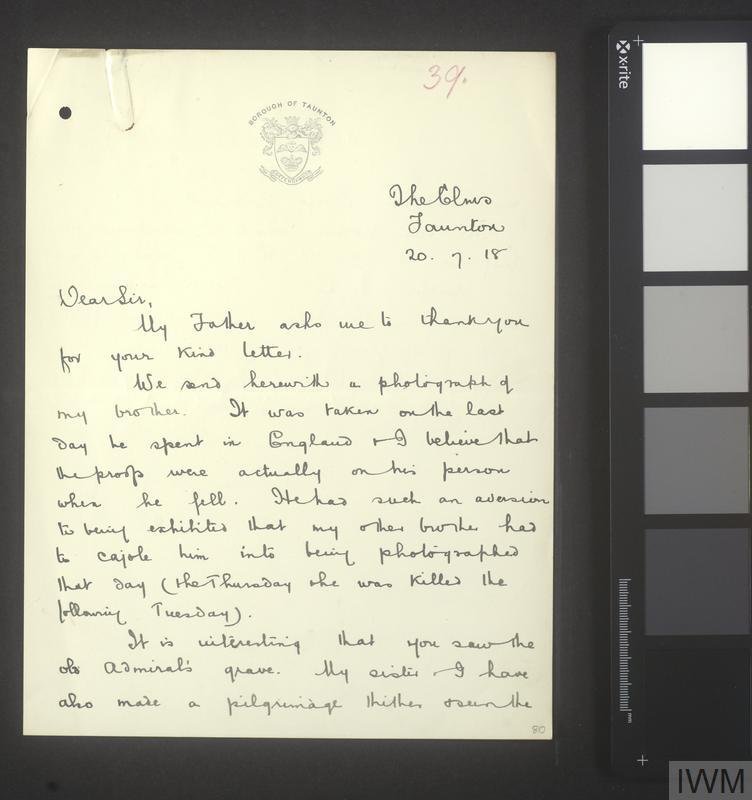 39.
BOROUGH OF TAUNTON
The Elms
Taunton
20. 7. 18
Dear Sir,
My Father asks me to thank you
for your kind letter.
We send herewith a photograph of
my brother. It was taken on the last
day he spent in England & I believe that
the proofs were actually on his person
when he fell. He had such an aversion
to being exhibited that my other brother had
to cajole him into being photographed
that day (the Thursday & he was killed the
following Tuesday).
It is interesting that you saw the
old Admiral's grave. My sister & I have
also made a pilgrimage thither & seen the
80
x·rite
mm
IWM